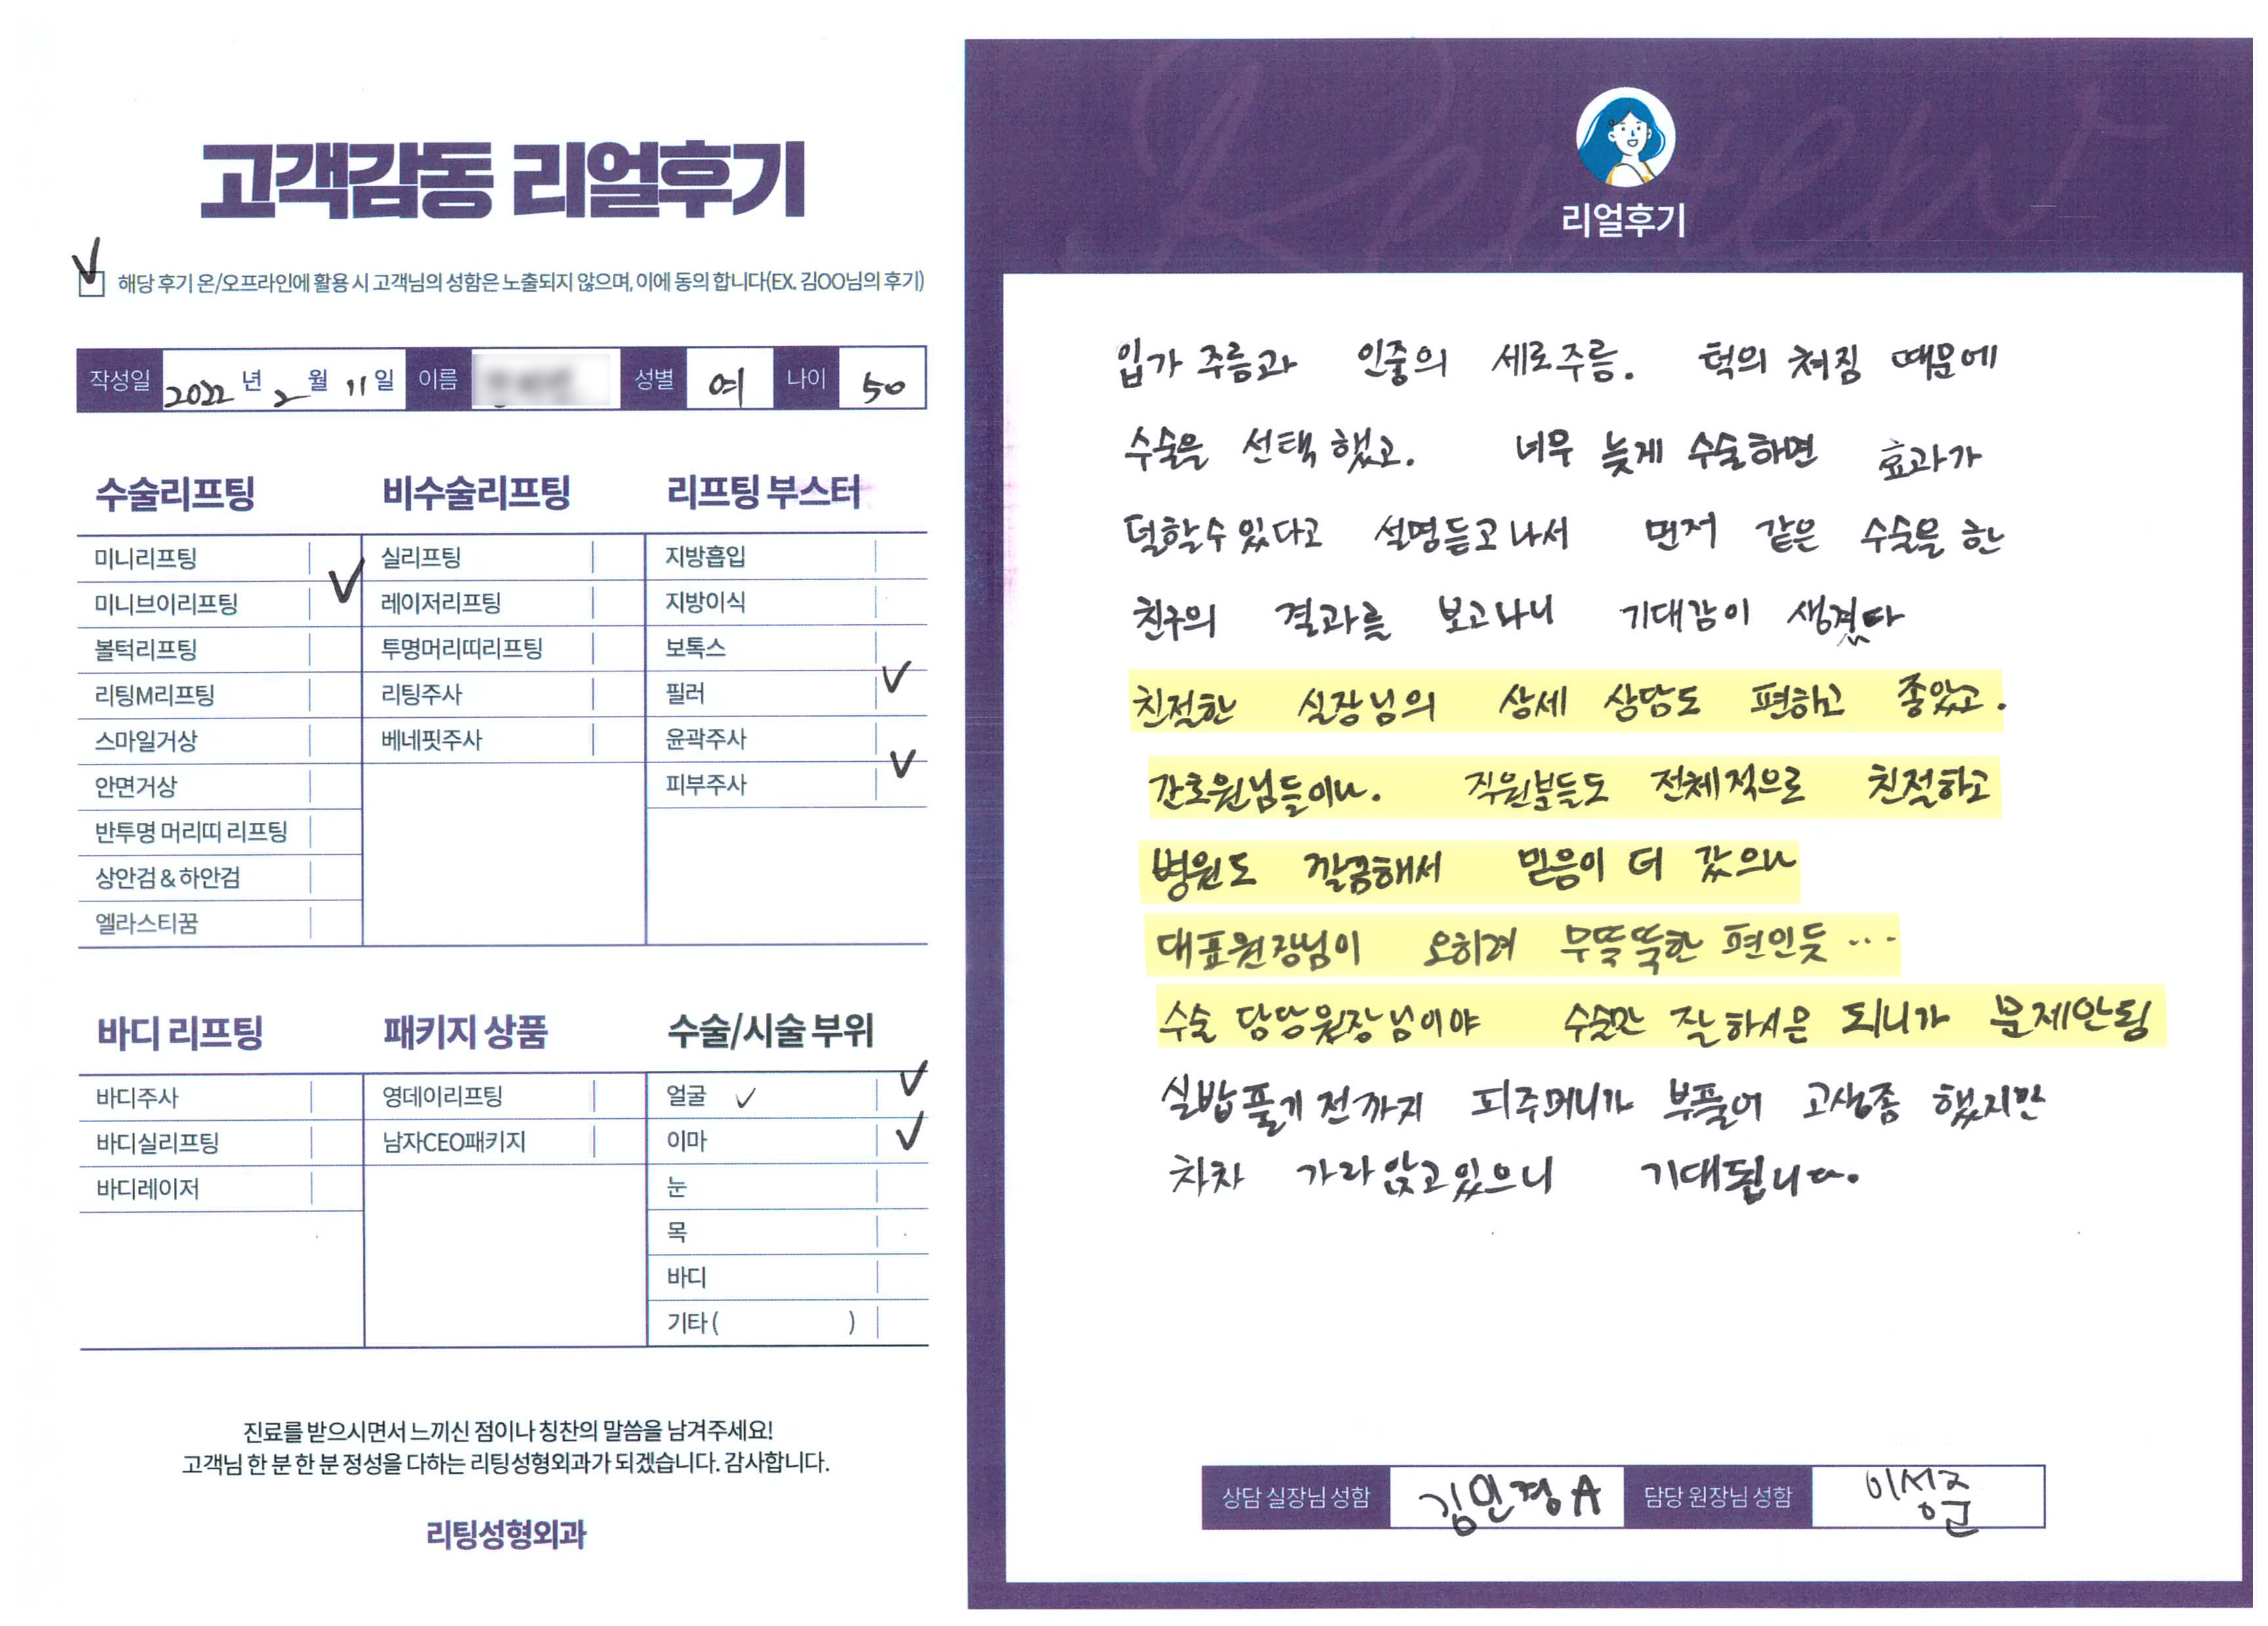 고객감동 리얼후기
✓ 해당 후기 온/오프라인에 활용 시 고객님의 성함은 노출되지 않으며, 이에 동의 합니다(EX. 김OO님의 후기)
작성일 2022 년 2 월 11 일 이름 성별 여 나이 50
수술리프팅
미니리프팅
미니브이리프팅 ✓
볼턱리프팅
리팅M리프팅
스마일거상
안면거상
반투명 머리띠 리프팅
상안검 & 하안검
엘라스티꿈
비수술리프팅
실리프팅
레이저리프팅
투명머리띠리프팅
리팅주사
베네핏주사
리프팅 부스터
지방흡입
지방이식
보톡스
필러 ✓
윤곽주사
피부주사 ✓
바디 리프팅
바디주사
바디실리프팅
바디레이저
패키지 상품
영데이리프팅
남자CEO패키지
수술/시술 부위
얼굴 ✓ ✓
이마 ✓
눈
목
바디
기타 ( )
진료를 받으시면서 느끼신 점이나 칭찬의 말씀을 남겨주세요!
고객님 한 분 한 분 정성을 다하는 리팅성형외과가 되겠습니다. 감사합니다.
리팅성형외과
Review
리얼후기
입가 주름과 인중의 세로주름. 턱의 쳐짐 때문에
수술을 선택 했고. 너무 늦게 수술하면 효과가
덜할수있다고 설명듣고나서 먼저 같은 수술을 한
친구의 결과를 보고나니 기대감이 생겼다
친절한 실장님의 상세 상담도 편하고 좋았고.
간호원님들이나. 직원분들도 전체적으로 친절하고
병원도 깔끔해서 믿음이 더 갔으나
대표원장님이 오히려 무뚝뚝한 편인듯 ...
수술 담당원장님이야 수술만 잘하시믄 되니가 문제안됨
실밥풀기 전까지 피주머니가 부풀어 고생좀 했지만
차차 가라앉고있으니 기대됩니다.
상담 실장님 성함 김민경A 담당 원장님 성함 이성준